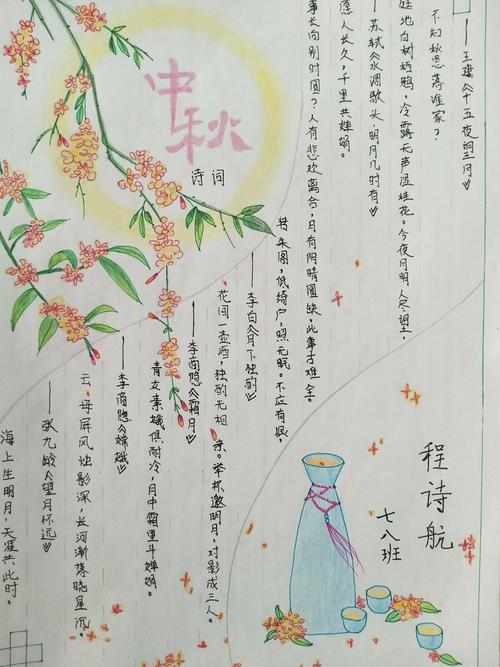 中秋
诗词
海上生明月，天涯共此时。
——张九龄《望月怀远》
云母屏风烛影深，长河渐落晓星沉。
——李商隐《嫦娥》
青女素娥俱耐冷，月中霜里斗婵娟。
——李商隐《霜月》
花间一壶酒，独酌无相亲。举杯邀明月，对影成三人。
——李白《月下独酌》
转朱阁，低绮户，照无眠。不应有恨，
事长向别时圆？人有悲欢离合，月有阴晴圆缺，此事古难全。
愿人长久，千里共婵娟。
——苏轼《水调歌头·明月几时有》
庭地白树栖鸦，冷露无声湿桂花。今夜月明人尽望，
不知秋思落谁家？
——王建《十五夜望月》
七八班
程诗航